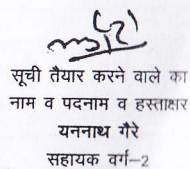 सूची तैयार करने वाले का
नाम व पदनाम व हस्ताक्षर
यननाथ गैरे
सहायक वर्ग-2